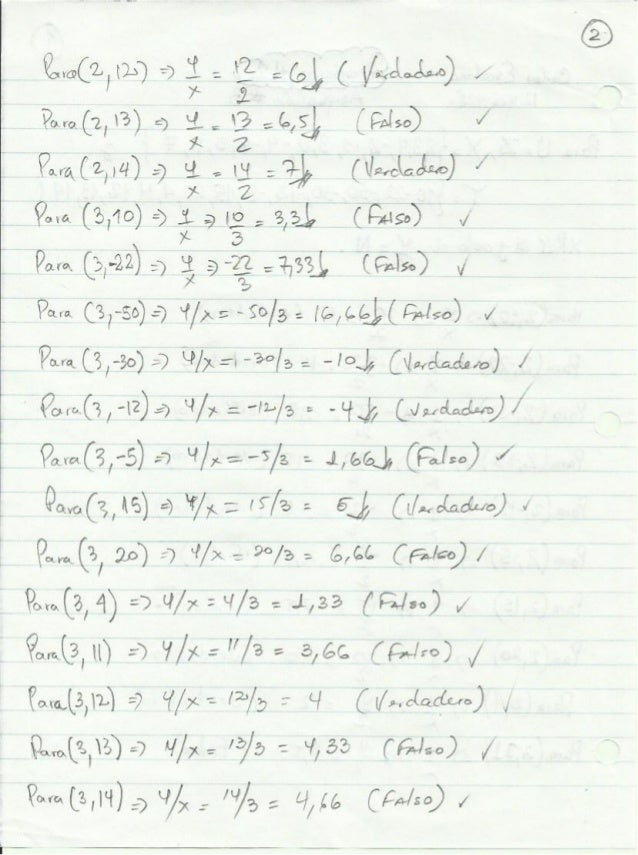 2
Para(2,12) => y/x = 12/2 = 6 (Verdadero) ✓
Para(2,13) => y/x = 13/2 = 6,5 (Falso) ✓
Para(2,14) => y/x = 14/2 = 7 (Verdadero) ✓
Para(3,10) => y/x => 10/3 = 3,3 (Falso) ✓
Para(3,-22) => y/x => -22/3 = 7,33 (Falso) ✓
Para(3,-50) => y/x = -50/3 = 16,66 (Falso) ✓
Para(3,-30) => y/x = -30/3 = -10 (Verdadero) ✓
Para(3,-12) => y/x = -12/3 = -4 (Verdadero) ✓
Para(3,-5) => y/x = -5/3 = 1,66 (Falso) ✓
Para(3,15) => y/x = 15/3 = 5 (Verdadero) ✓
Para(3,20) => y/x = 20/3 = 6,66 (Falso) ✓
Para(3,4) => y/x = 4/3 = 1,33 (Falso) ✓
Para(3,11) => y/x = 11/3 = 3,66 (Falso) ✓
Para(3,12) => y/x = 12/3 = 4 (Verdadero) ✓
Para(3,13) => y/x = 13/3 = 4,33 (Falso) ✓
Para(3,14) => y/x = 14/3 = 4,66 (Falso) ✓